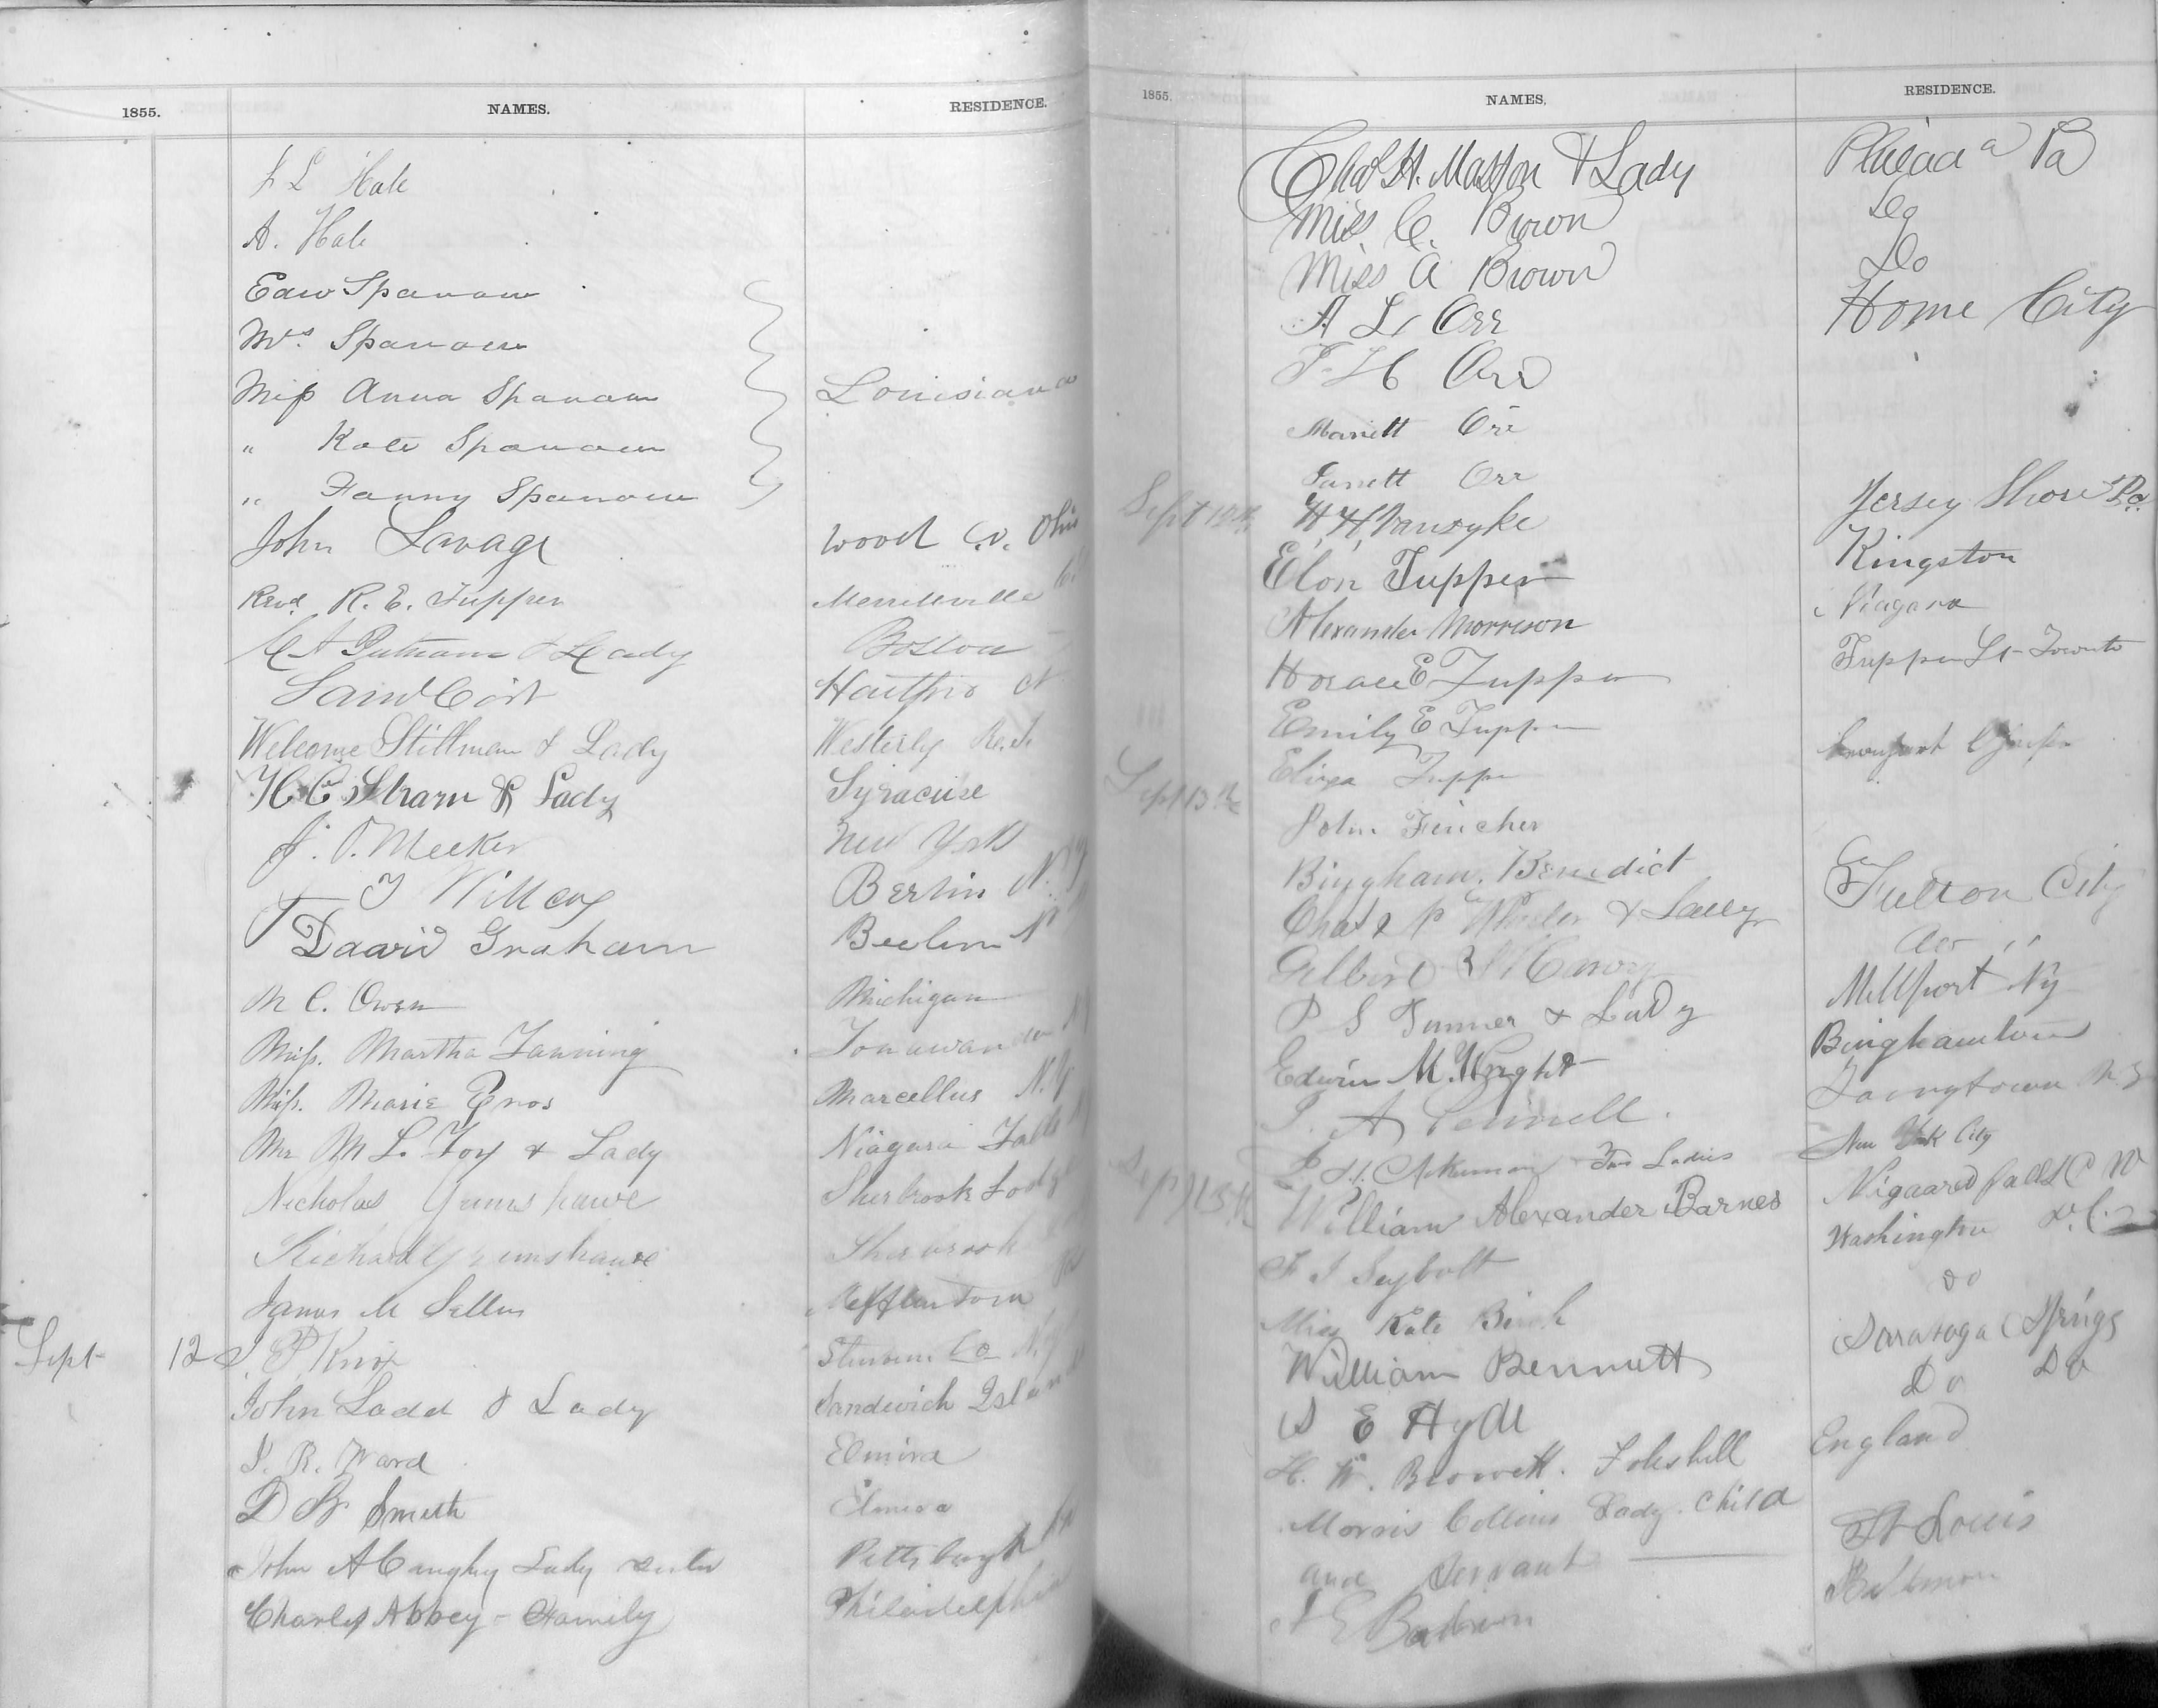 1855. NAMES. RESIDENCE.
J L Hale
A. Hale
Edw Sparrow
Mrs. Sparrow
Miss Anna Sparrow Louisiana
" Kate Sparrow
" Fanny Sparrow
John Savage Wood Co. Ohio
Revd R. E. Tupper Merrittville
C A Putnam & Lady Boston
Hartford Ct
Welcome Stillman & Lady Westerly R.I.
H C & Lady Syracuse
J. Meeker New York
T Willcox Berlin N.Y
Daavid Graham Berlin N
M C. Owen Michigan
Miss. Martha Fanning Tonawanda N
Miss. Marie Enos Marcellus N.Y
Mr M L. Foy & Lady Niagara Falls
Nicholas Grimshawe Sherbrook
Richard Grimshawe Sherbrook
James M Sellers
Sept 12 P Knox Steuben Co N.Y
John Ladd & Lady Sandwich Island
J. R. Ward Elmira
D Smith Elmira
John A Caughey Lady Pittsburgh
Charles Abbey - Family Philadelphia
1855. NAMES. RESIDENCE.
Chas H. Masson & Lady Philada Pa
Miss C. Brown Do
Miss A Brown Do
A L. Orr Home City
H Orr
Mariett Orr
Janett Orr
Sept H H Vanzyke Jersey Shore Pa.
Elon Tupper Kingston
Alexander Morrison Niagara
Horace E Tupper Tupper St Toronto
Emily E Tupper
Sept 13th Eliza Tupper
John Fincher
Bingham Benedict
Chas P Wheeler & Lady Fulton City
Gilbert
P S Tanner & Lady Millport Ny
Edwin M. Wright Binghamton
A Youngtown N Y
Ackerman Two Ladies New York City
Sept 13th William Alexander Barnes Nigaara falls C W
F J Seybolt Washington D.C.
Miss Kate Birch do
William Bennett Saratoga Springs
S E Hyde Do Do
H. W. Browett. Foleshill England
Morris Collins Lady. Child
and Servant St Louis
J E Baltimore